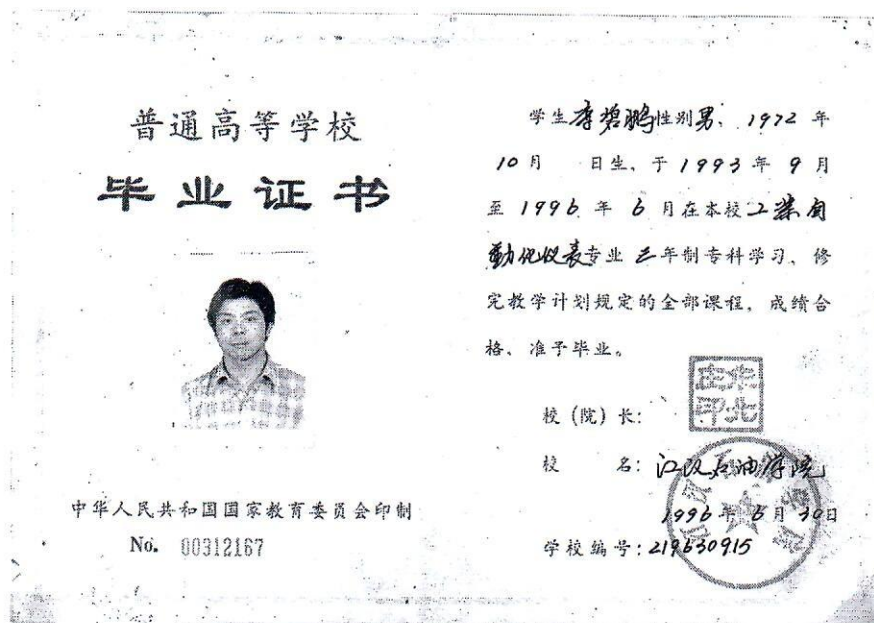 普通高等学校
毕业证书
中华人民共和国国家教育委员会印制
No. 00312167
学生李碧鹏性别男、1972年
10月 日生、于1993年9月
至1996年6月在本校工业自
动化仪表专业三年制专科学习、修
完教学计划规定的全部课程，成绩合
格、准予毕业。
校(院)长:
校 名: 江汉石油学院
1996年6月30日
学校编号: 219630915